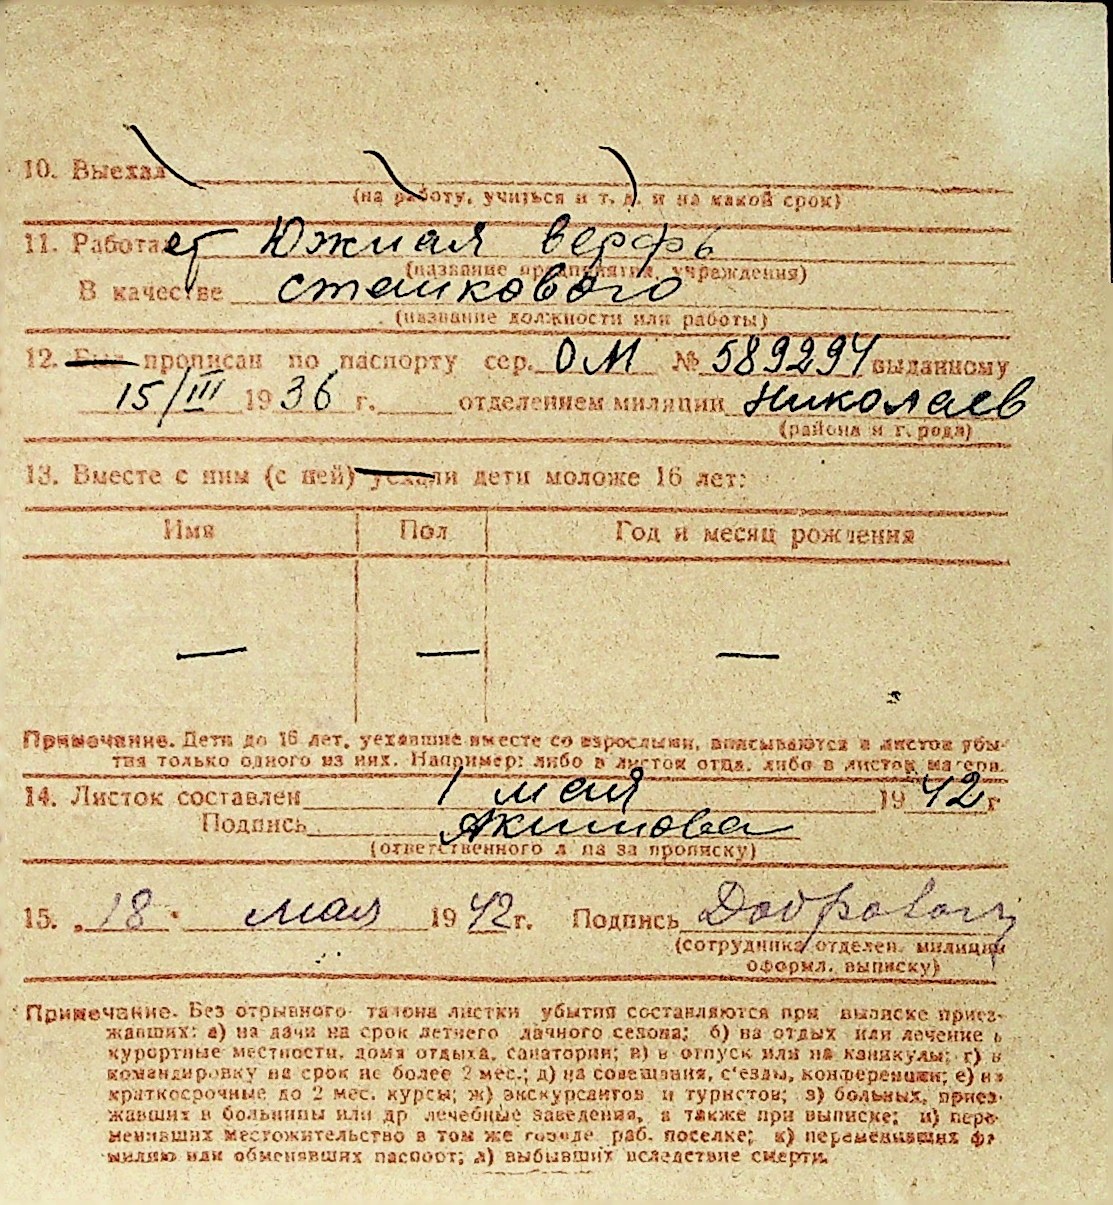 10. Выехал
(на работу, учиться и т. д. и на какой срок)
11. Работает Южная верфь
(название предприятия, учреждения)
В качестве станкового
(название должности или работы)
12. Был прописан по паспорту сер. ОМ № 589294 выданному
15/III 1936 г. отделением милиции Николаев
(района и города)
13. Вместе с ним (с ней) уехали дети моложе 16 лет:
Имя Пол Год и месяц рождения
— — —
Примечание. Дети до 16 лет, уехавшие вместе со взрослыми, вписываются в листок убы-
тия только одного из них. Например: либо в листок отца, либо в листок матери.
14. Листок составлен 1 мая 1942 г
Подпись Акимова
(ответственного лица за прописку)
15. „18" мая 1942 г. Подпись
(сотрудника отделен. милиции
оформл. выписку)
Примечание. Без отрывного талона листки убытия составляются при выписке приез-
жавших: а) на дачи на срок летнего дачного сезона; б) на отдых или лечение в
курортные местности, дома отдыха, санатории; в) в отпуск или на каникулы; г) в
командировку на срок не более 2 мес.; д) на совещания, с'езды, конференции; е) на
краткосрочные до 2 мес. курсы; ж) экскурсантов и туристов; з) больных, приез-
жавших в больницы или др лечебные заведения, а также при выписке; и) пере-
менивших местожительство в том же городе раб. поселке; к) переменивших фа-
милию или обменявших паспорт; л) выбывших вследствие смерти.